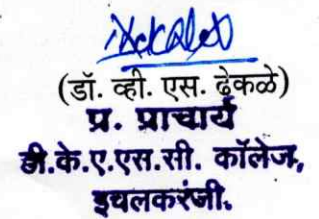 (डॉ. व्ही. एस. ढेकळे)
प्र. प्राचार्य
डी.के.ए.एस.सी. कॉलेज,
इचलकरंजी.